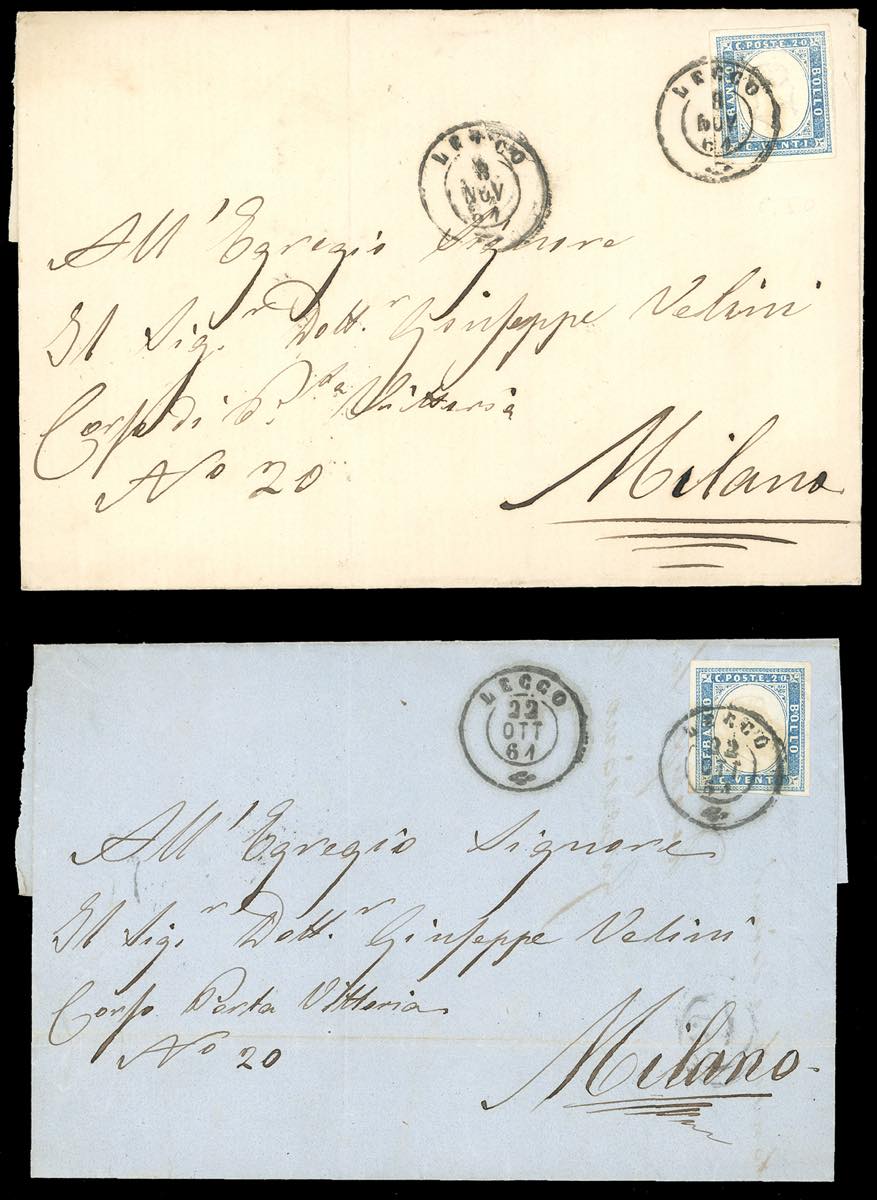 C. POSTE. 20.
FRANCO
BOLLO
C. VENTI
LECCO
8
NOV
61
LECCO
8
NOV
61
All' Egregio Signore
Il Sig.r Dott.r Giuseppe Velini
Corso di P.ta Vittoria
No 20
Milano
C. POSTE. 20.
FRANCO
BOLLO
C. VENTI
LECCO
22
OTT
61
LECCO
22
61
All' Egregio Signore
Il Sig.r Dott.r Giuseppe Velini
Corso Porta Vittoria
No 20
Milano